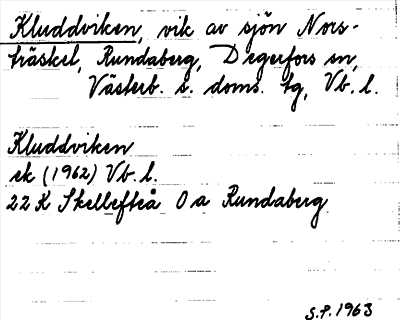 Kluddviken, vik av sjön Nors-
träsket, Rundaberg, Degerfors sn,
Västerb. s. doms. tg, Vb. l.
Kluddviken
ek (1962) Vb. l.
22 K Skellefteå 0 a Rundaberg
S.P. 1963